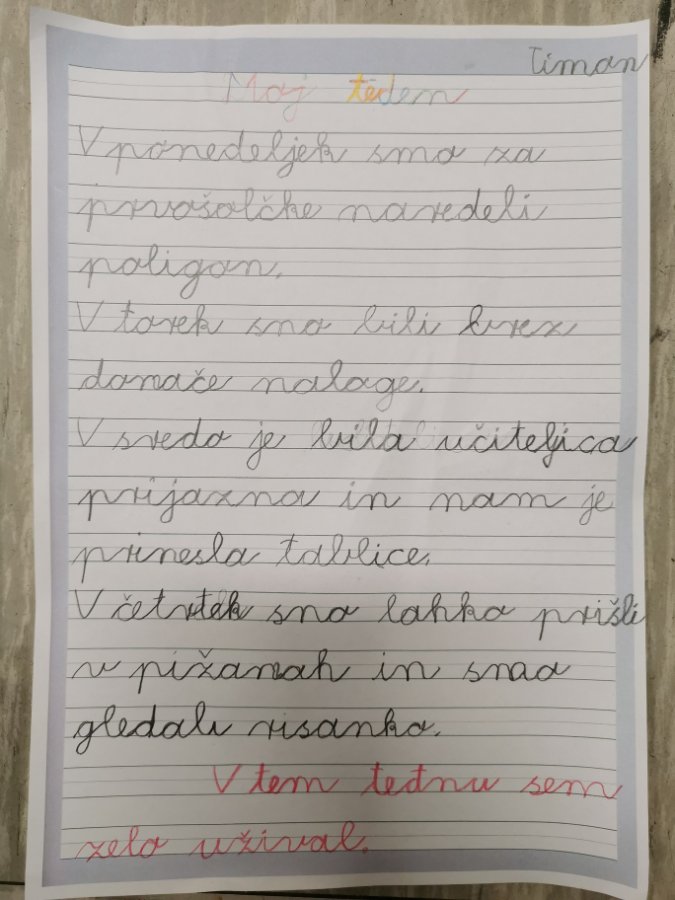 Timon
Moj teden
V ponedeljek smo za
prvošolčke naredeli
poligon.
V torek smo bili brez
domače naloge.
V sredo je bila učiteljica
prijazna in nam je
prinesla tablice.
V četrtek smo lahko prišli
v pižamah in smo
gledali risanko.
V tem tednu sem
zelo užival.